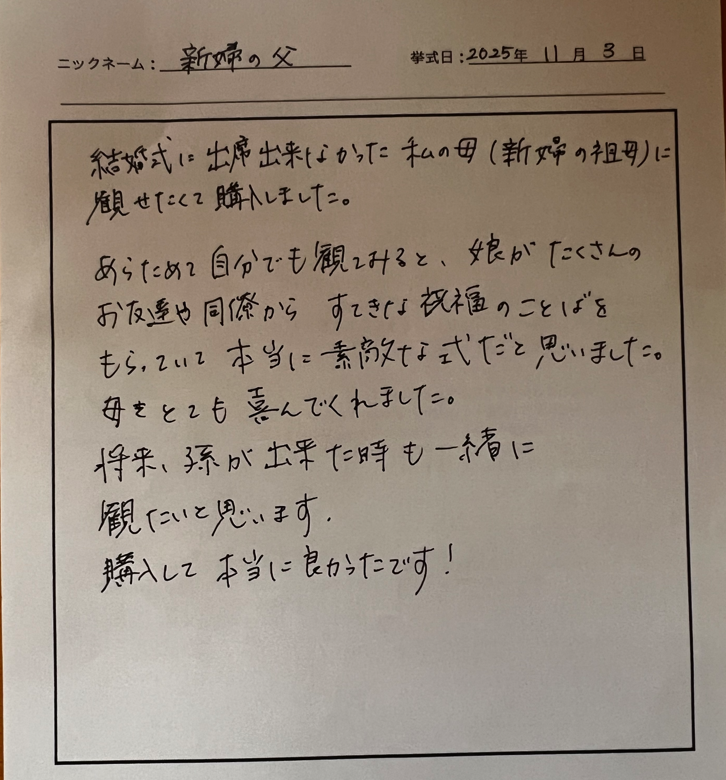 ニックネーム： 新婦の父 挙式日：2025年 11月 3日
結婚式に出席出来なかった私の母（新婦の祖母）に
観せたくて購入しました。
あらためて自分でも観てみると、娘がたくさんの
お友達や同僚から すてきな祝福のことばを
もらっていて 本当に素敵な式だと思いました。
母もとても喜んでくれました。
将来、孫が出来た時も一緒に
観たいと思います.
購入して本当に良かったです！